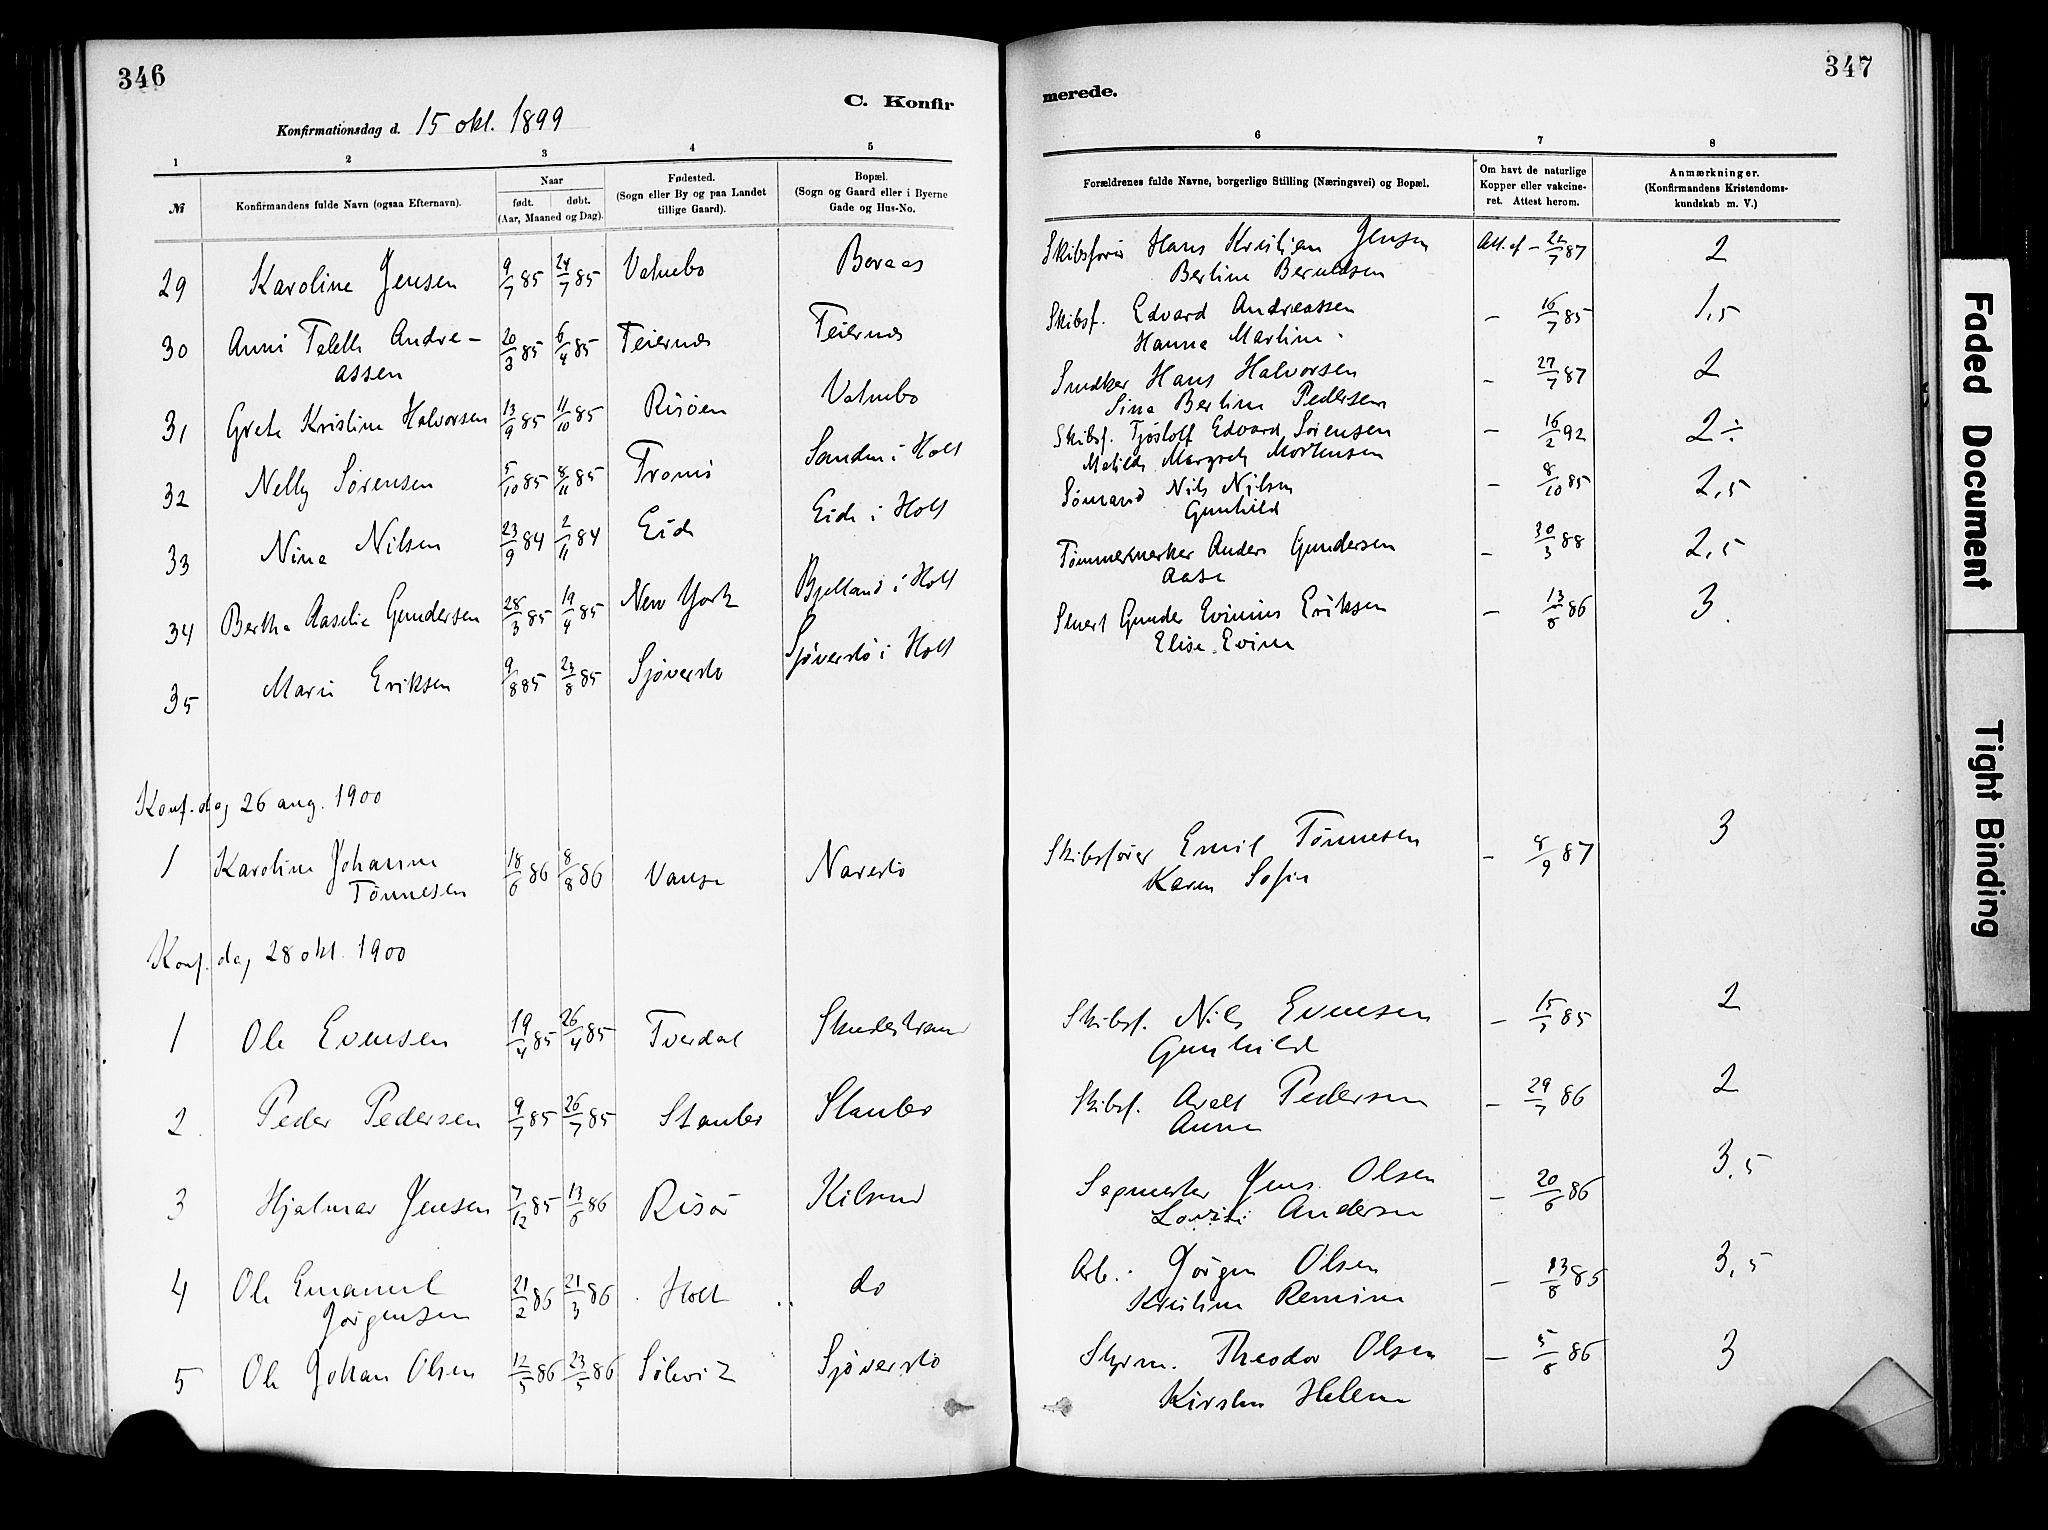 346
C. Konfir
Konfirmationsdag d. 15 okt. 1899
1 2 3 4 5
№
Konfirmandens fulde Navn (ogsaa Efternavn).
Naar
født. døbt.
(Aar, Maaned og Dag).
Fødested.
(Sogn eller By og paa Landet
tillige Gaard).
Bopæl.
(Sogn og Gaard eller i Byerne
Gade og Hus-No.
29 Karoline Jensen 9/7 85 24/7 85 Valnebo Boraas
30 Anni Andre-
assen 20/3 85 6/4 85 Feiernes Feiernes
31 Grete Kristine Halvorsen 13/9 85 11/10 85 Risøen Valnebo
32 Nelly Sørensen 5/10 85 8/11 85 Tromø i Holt
33 Nina Nilsen 23/9 84 2/11 84 Eide Eide i Holt
34 Bertha Aaselie Gundersen 28/3 85 19/4 85 New York Bjelland i Holt
35 Marie Eriksen 9/8 85 23/8 85 Sjøverstø Sjøverstø i Holt
Konf.dag 26 aug. 1900
1 Karoline Johanne
Tønnesen 18/6 86 8/8 86 Vanse Narestø
Konf.dag 28 okt. 1900
1 Ole Evensen 19/4 85 26/4 85 Tverdal Skudestrand
2 Peder Pedersen 9/7 85 26/7 85 Staubø Staubø
3 Hjalmar Jensen 7/12 85 13/6 86 Risør Kilsund
4 Ole Emanuel
Jørgensen 21/2 86 21/3 86 Holt do
5 Ole Johan Olsen 12/5 86 23/5 86 Sjøverstø
347
merede.
6 7 8
Forældrenes fulde Navne, borgerlige Stilling (Næringsvei) og Bopæl.
Om havt de naturlige
Kopper eller vakcine-
ret. Attest herom.
Anmærkninger.
(Konfirmandens Kristendoms-
kundskab m. V.)
Skibsfører Hans Kristian Jensen Att. af - 22/7 87 2
Berline Berntsen
Skibsf. Edvard Andreassen - 16/7 85 1,5
Hanna Martine
Snedker Hans Halvorsen - 27/7 87 2
Sina Berline Pedersen
Skibsf. Tjøstolf Edvard Sørensen - 16/2 92 2÷
Matilde Margrete Mortensen
Sømand Nils Nilsen - 8/10 85 2,5
Gunhild
Tømmermerker Anders Gundersen - 30/3 88 2,5
Aase
Stuert Gunder Evinius Eriksen - 13/8 86 3.
Elise Evine
Skibsfører Emil Tønnesen - 8/9 87 3
Karen Sofie
Skibsf. Nils Evensen - 85 2
Gunhild
Skibsf. Avalt Pedersen - 29/7 86 2
Anna
Sagmester Jens Olsen - 20/6 86 3,5
Lovise Andersen
Arb. Jørgen Olsen - 13/8 85 3,5
Kristine
Styrm. Theodor Olsen - 5/8 86 3
Kirsten Helene
Faded Document
Tight Binding